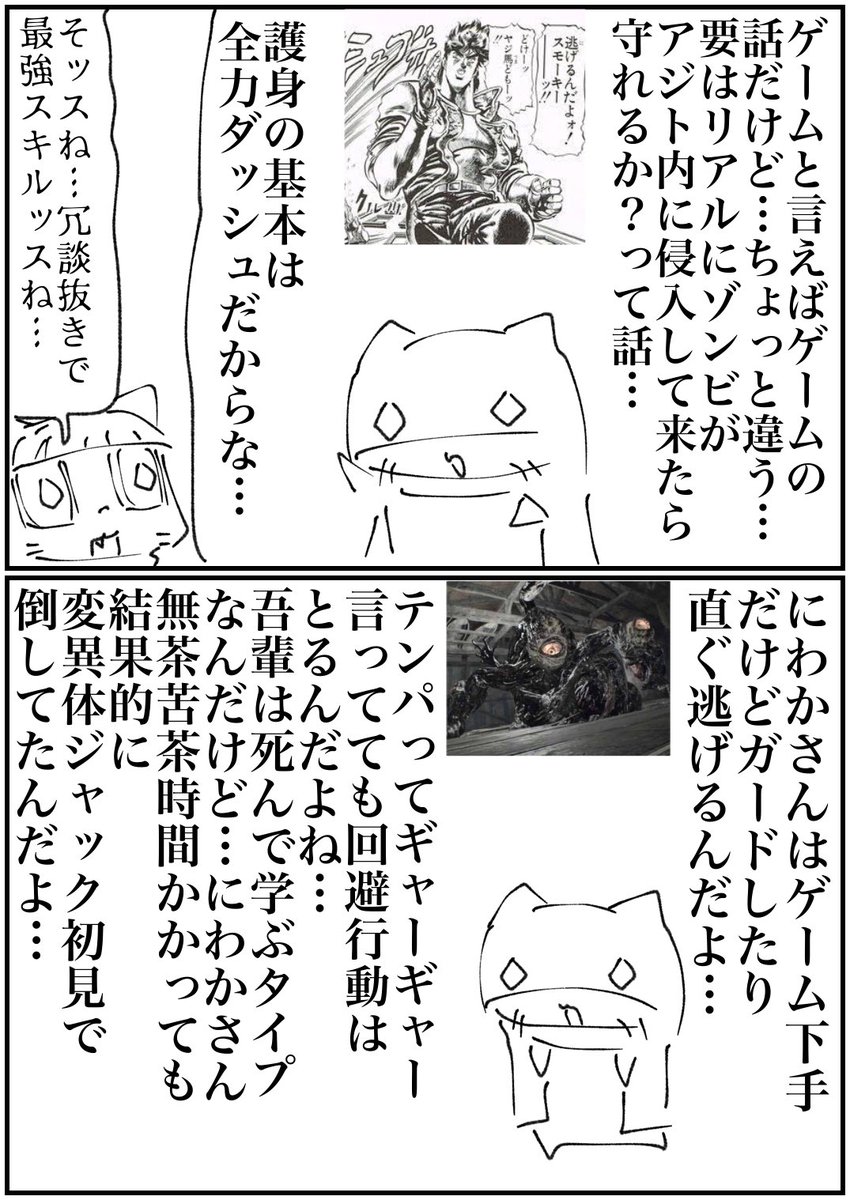 ゲームと言えばゲームの
話だけど…ちょっと違う…
要はリアルにゾンビが
アジト内に侵入して来たら
守れるか？って話…
逃げるんだよォ！
スモーキー
ーッ!!
どけーッ
ヤジ馬どもーッ
!!
護身の基本は
全力ダッシュだからな…
そッスね…冗談抜きで
最強スキルッスね…
にわかさんはゲーム下手
だけどガードしたり
直ぐ逃げるんだよ…
テンパってギャーギャー
言ってても回避行動は
とるんだよね…
吾輩は死んで学ぶタイプ
なんだけど…にわかさん
無茶苦茶時間かかっても
結果的に
変異体ジャック初見で
倒してたんだよ…